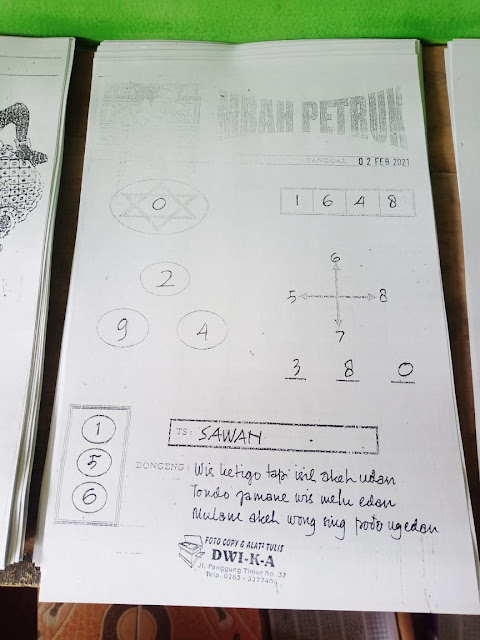 MBAH PETRUK
TANGGAL 02 FEB 2021
0
1 6 4 8
2
9 4
6
5 8
7
3 8 0
1
5
6
TS: SAWAH
DONGENG: Wis ketigo tapi isil akeh udan
Tondo jamane wis melu edan
Mulane akeh wong sing podo ngedan
FOTO COPY & ALAT2 TULIS
DWI-K-A
Jl. Panggung Timur No. 37
Telp. 0283 -